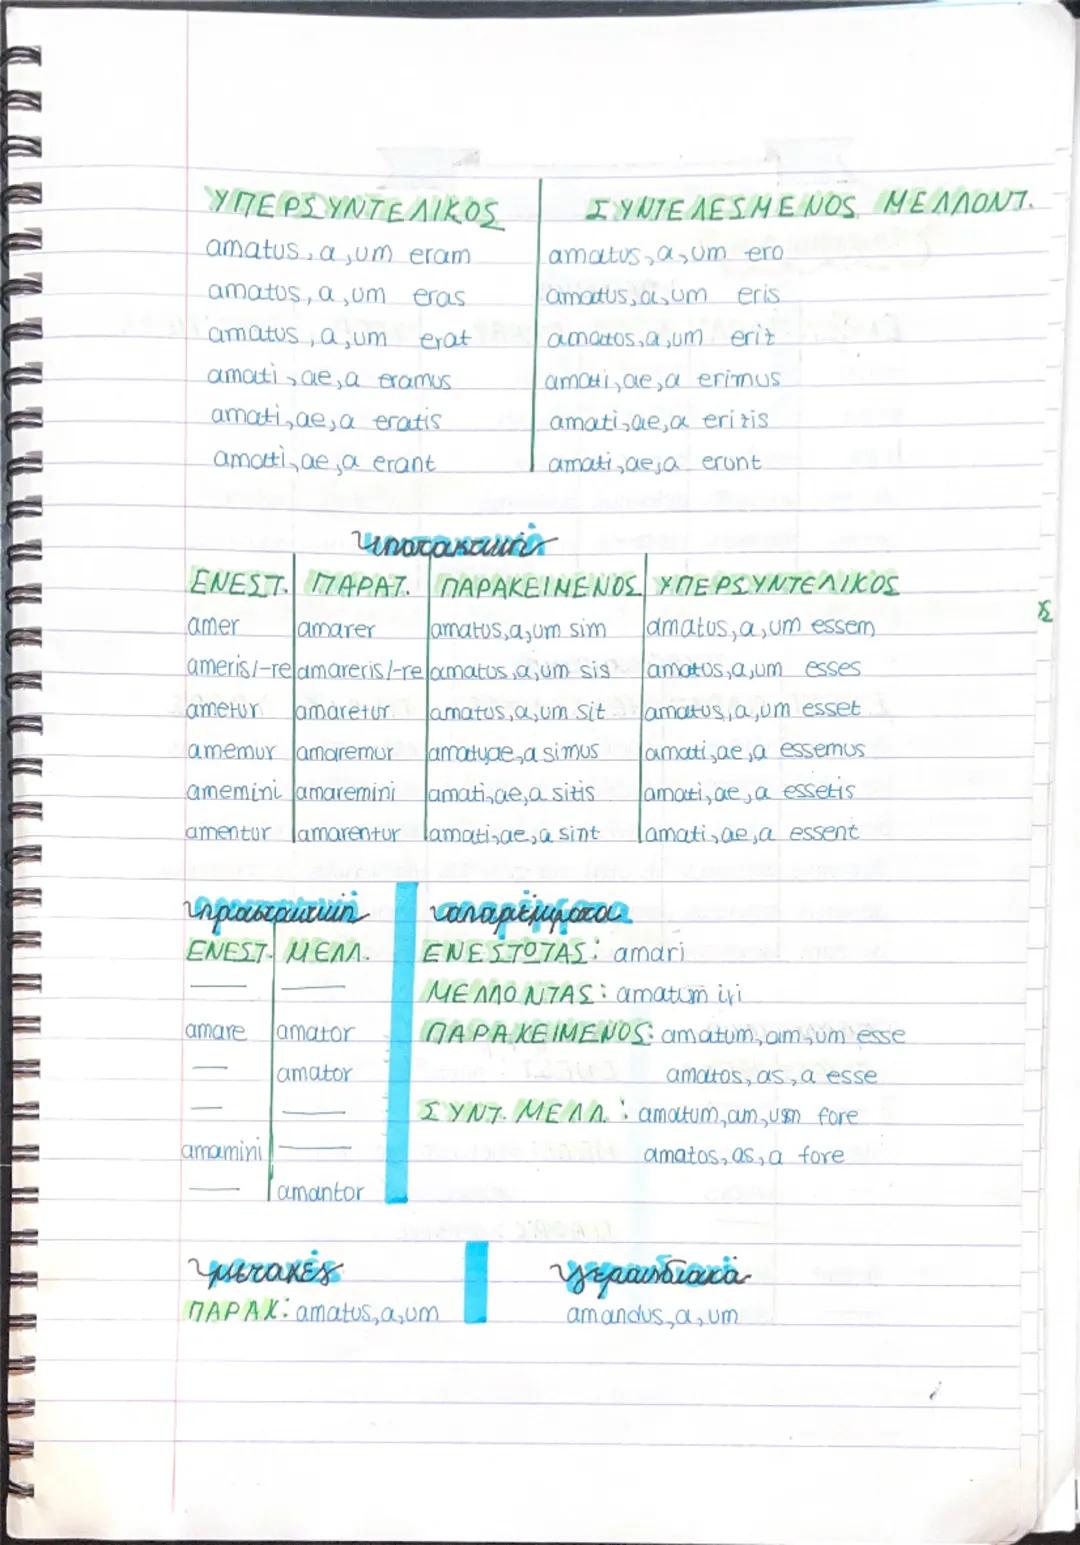 ΥΠΕΡΣΥΝΤΕΛΙΚΟΣ ΣΥΝΤΕΛΕΣΜΕΝΟΣ ΜΕΛΛΟΝΤ.
amatus, a, um eram amatus, a, um ero
amatus, a, um eras amatus, a, um eris
amatus, a, um erat amatus, a, um erit
amati, ae, a eramus amati, ae, a erimus
amati, ae, a eratis amati, ae, a eritis
amati, ae, a erant amati, ae, a erunt
υποτακτική
ΕΝΕΣΤ. ΠΑΡΑΤ. ΠΑΡΑΚΕΙΜΕΝΟΣ ΥΠΕΡΣΥΝΤΕΛΙΚΟΣ
amer amarer amatus, a, um sim amatus, a, um essem
ameris/-re amareris/-re amatus, a, um sis amatus, a, um esses
ametur amaretur amatus, a, um sit amatus, a, um esset
amemur amaremur ae, a simus amati, ae, a essemus
amemini amaremini amati, ae, a sitis amati, ae, a essetis
amentur amarentur amati, ae, a sint amati, ae, a essent
προστακτική απαρέμφατα
ΕΝΕΣΤ. ΜΕΛΛ. ΕΝΕΣΤΩΤΑΣ: amari
— — ΜΕΛΛΟΝΤΑΣ: amatum iri
amare amator ΠΑΡΑΚΕΙΜΕΝΟΣ: amatum, am, um esse
— amator amatos, as, a esse
— — ΣΥΝΤ. ΜΕΛΛ.: amatum, am, um fore
amamini — amatos, as, a fore
— amantor
μετοχές γερουνδιακά
ΠΑΡΑΚ: amatus, a, um amandus, a, um